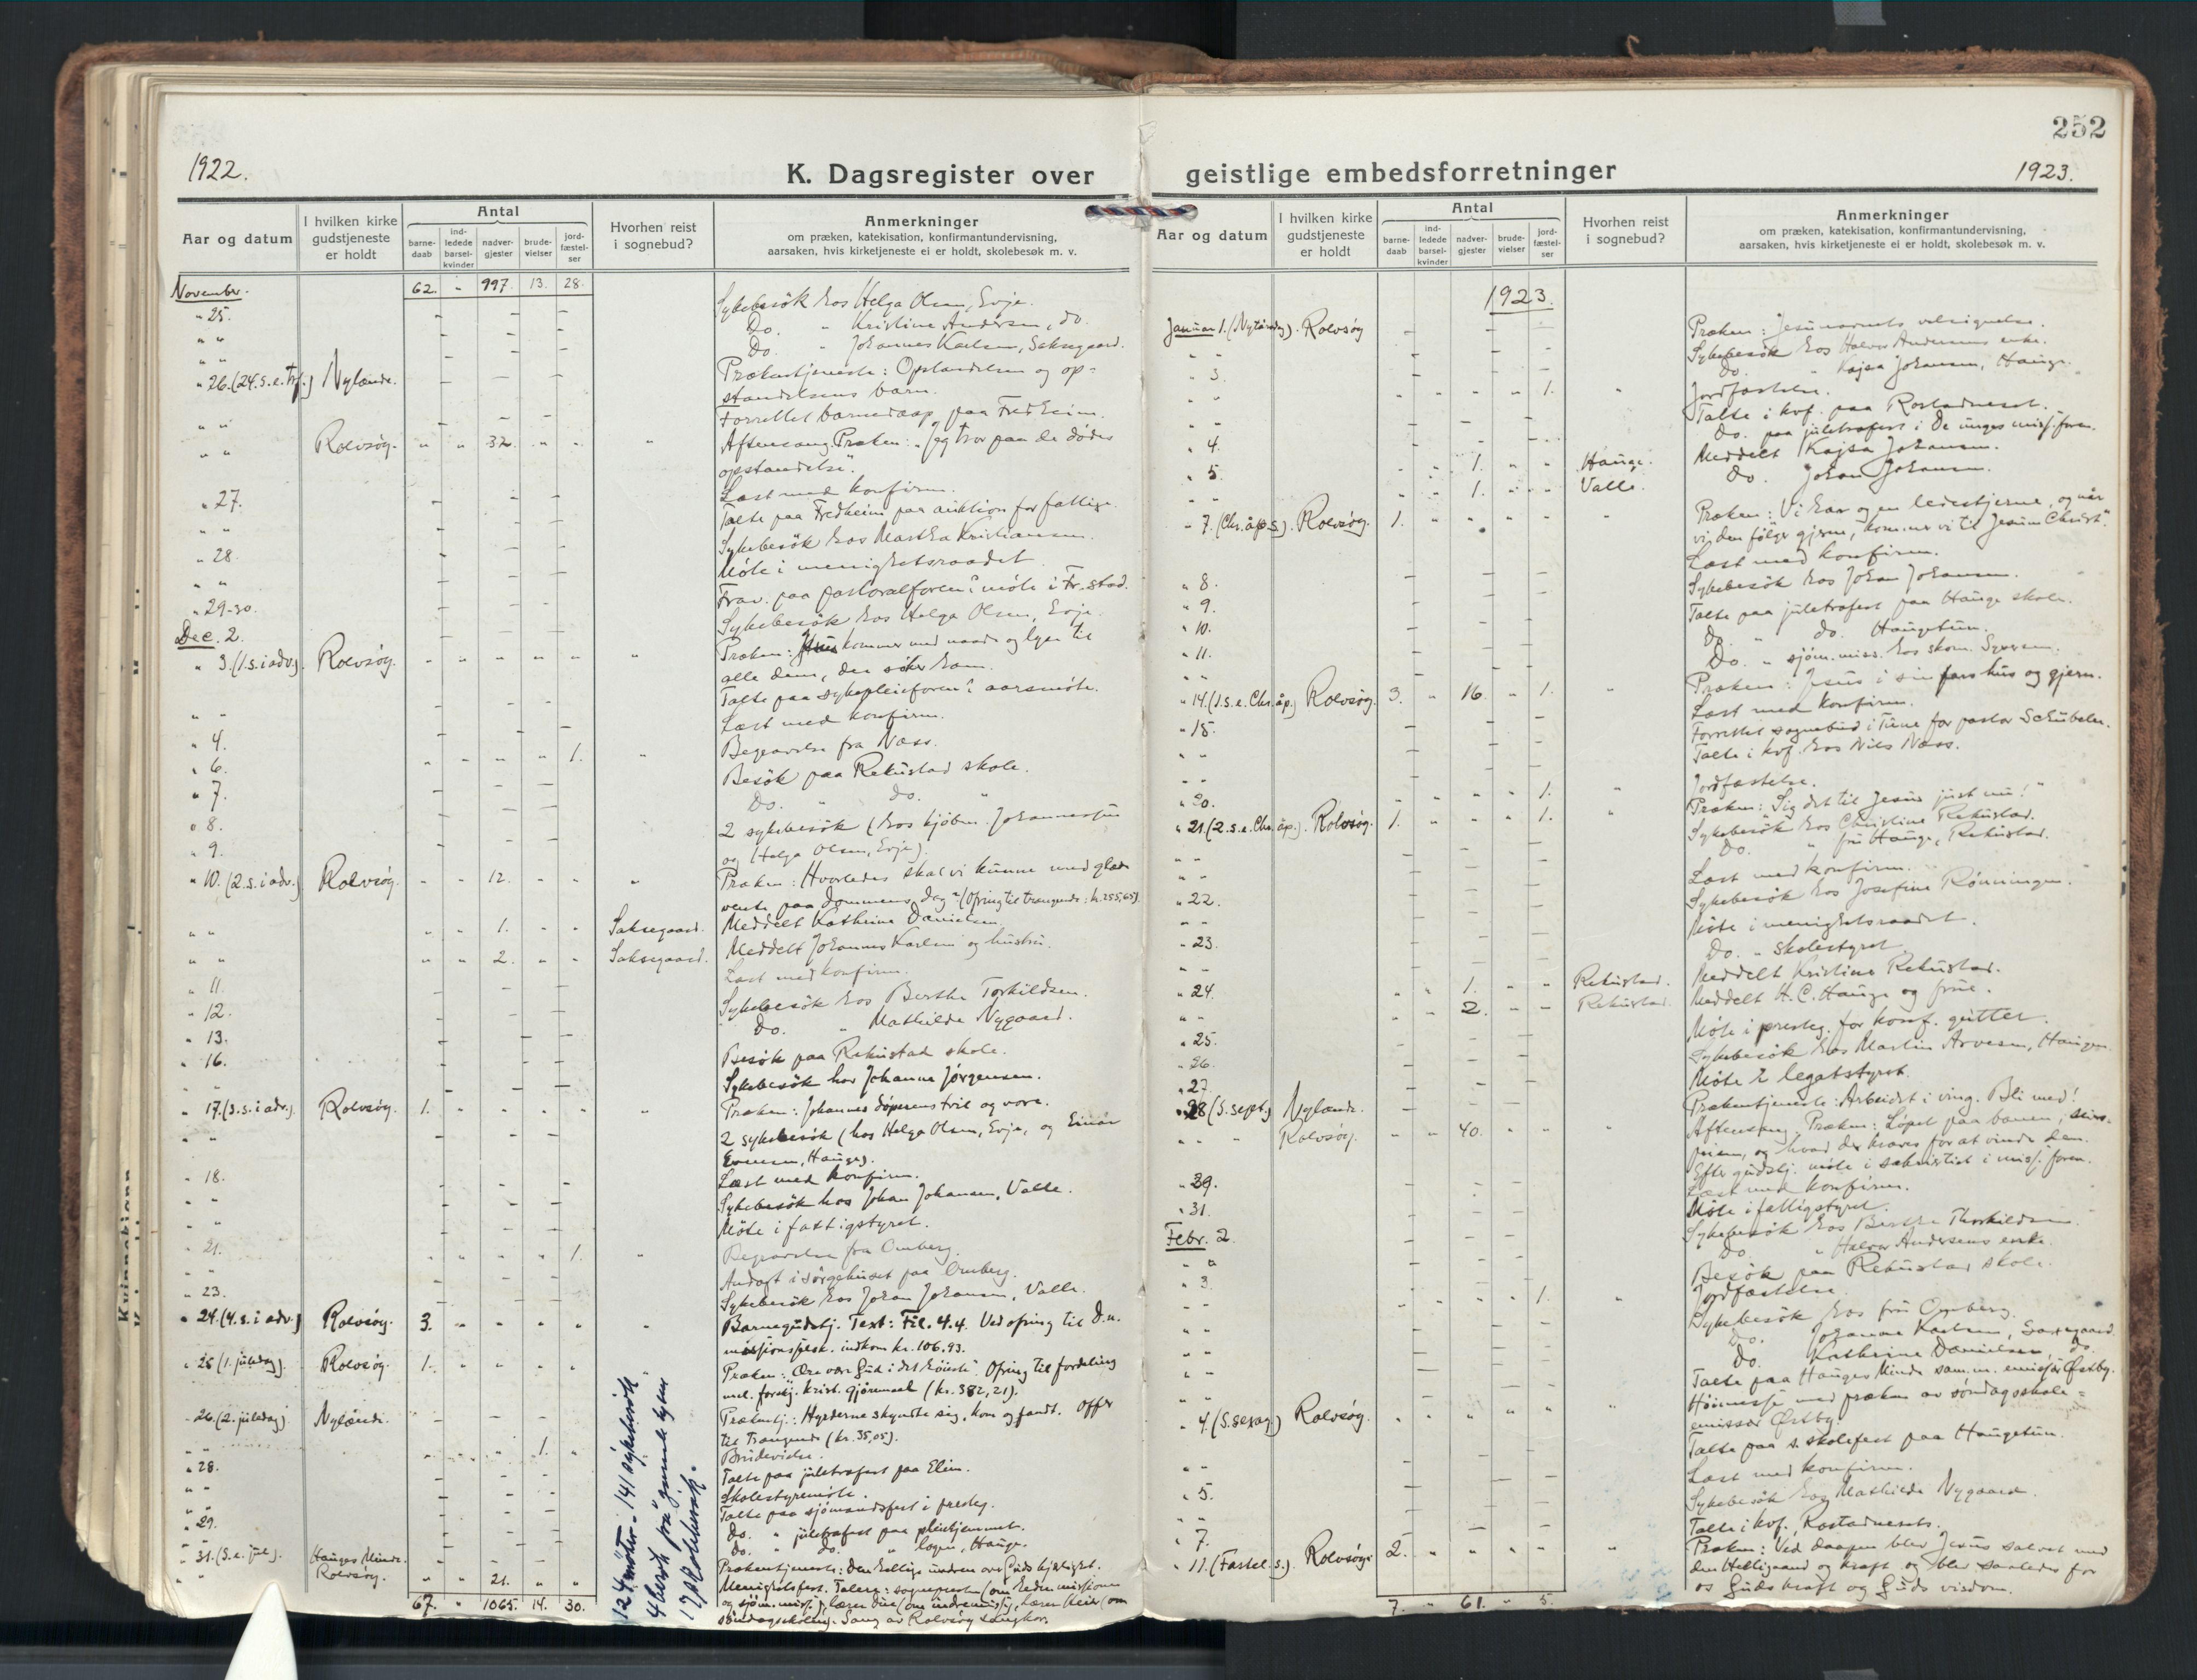 1922.
K. Dagsregister over
Aar og datum
I hvilken kirke gudstjeneste er holdt
Antal
barne-daab
ind-ledede barsel-kvinder
nadver-gjester
brude-vielser
jord-fæstel-ser
Hvorhen reist i sognebud?
Anmerkninger
om præken, katekisation, konfirmantundervisning,
aarsaken, hvis kirketjeneste ei er holdt, skolebesøk m. v.
November. 62. " 997. 13. 28.
" 25. Sykebesök hos Helga Olsen, Evje.
" " Do. " Kristine Andersen, do.
" " Do. " Johannes Karlsen, Saksegaard.
" 26. (24. s. e. trf.) Nylænde. Prækentjeneste: Opstandelsen og op-
standelsens barn.
" " Forrettet barnedaap paa Fredheim.
" " Rolvsøy. " " 32. " " " Aftensang. Præken: "Jeg tror paa de dødes
opstandelse".
" 27. Læst med konfirm.
" " Talte paa Fredheim paa auktion for fattige.
" 28. Sykebesök hos Martha Kristiansen.
" " Möte i menighetsraadet.
" 29-30. Frav. paa pastoralforen.s möte i Fr.stad.
Dec. 2. Sykebesök hos Helga Olsen, Evje.
" 3. (1. s. i adv.) Rolvsøy. " " " " " " Præken: Jesus kommer med naade og lyst til
alle dem, der søker ham.
" " Talte paa sykepleieforen.s aarsmöte.
" 4. Læst med konfirm.
" 6. " " " " 1. " Begravelse fra Næss.
" 7. Besök paa Rekustad skole.
" 8. Do. " do. "
" 9. 2 sykebesök (hos kjøbm. Johannessen
og Helga Olsen, Evje).
" 10. (2. s. i adv.) Rolvsøy. " " 12. " " " Præken: Hvorledes skal vi kunne med glæde
vente paa dommens dag? (Ofring til trængende: kr. 255,65)
" " " " 1. " " Saksegaard. Meddelt Kathrine Danielsen.
" " " " 2. " " Saksegaard. Meddelt Johannes Karlsen og hustru.
" 11. Læst med konfirm.
" 12. Sykebesök hos Berthe Torkildsen.
" 13. Do. " Mathilde Nygaard.
" 16. Besök paa Rekustad skole.
" Sykebesök hos Johanne Jørgensen.
" 17. (3. s. i adv.) Rolvsøy. 1. " " " " " Præken: Johannes döperens tvil og vore.
" 2 sykebesök (hos Helga Olsen, Evje, og Einar
Evensen, Hauge).
" 18. Læst med konfirm.
" Sykebesök hos Johan Johansen, Valle.
" " Möte i fattigstyret.
" 21. " " " " 1. " Begravelse fra Omberg.
" " Andagt i sörgehuset paa Omberg.
" 23. Sykebesök hos Johan Johansen, Valle.
" 24. (4. s. i adv.) Rolvsøy. 3. " " " " " Barnegudstj. Text: Fil. 4.4. Ved ofring til D. n.
missjonsselsk. indkom kr. 106,93.
" 25 (1. juledag). Rolvsøy. 1. " " " " Præken: "Ære være Gud i det höieste". Ofring til fordeling
mel. forskj. krist. gjöremaal (kr. 382,21).
" 26. (2. juledag) Nylænde. Prækentj.: Hyrderne skyndte sig, kom og fandt. Offer
til trængende (kr. 35,05).
" " " " " 1. " Brudevielse.
" 28. Talte paa juletræfest paa Elim.
" " Skolestyremöte.
" " Talte paa sjömandsfest i presteg.
" 29. Do. " juletræfest paa pleiehjemmet.
" " Do. " do. " logen, Hauge.
" 31. (S. e. jul). Hauges Minde. Prækentjeneste: Den hellige undren over Guds kjærlighet.
" " Rolvsøy. " " 21. " " Menighetsfest. Talere: sognepresten (om hedningemissionen
og sjöm.miss.), lærer Due (om indremiss.), lærer Keis (om
söndagsskolen). Sang av Rolvsøy sangkor.
67. " 1065. 14. 30.
124 möter. 141 sykebesök
17 skolebesök.
252
geistlige embedsforretninger
1923.
Aar og datum
I hvilken kirke gudstjeneste er holdt
Antal
barne-daab
ind-ledede barsel-kvinder
nadver-gjester
brude-vielser
jord-fæstel-ser
Hvorhen reist i sognebud?
Anmerkninger
om præken, katekisation, konfirmantundervisning,
aarsaken, hvis kirketjeneste ei er holdt, skolebesøk m. v.
1923.
Januar 1. (Nytårsdag). Rolvsøy Præken: Jesunavnets velsignelse.
" " Sykebesök hos Halvor Andersens enke.
" 3. Do. " Kajsa Johansen, Hauge.
" " " " " " 1. " Jordfæstelse.
" " Talte i kvf. paa Rostadneset.
" 4. Do. paa juletræfest i De unges miss.foren.
" 5. " " 1. " " Hauge. Meddelt Kajsa Johansen.
" " " " 1. " " Valle. Do. Johan Johansen.
" 7. (Chr. åp. s). Rolvsøy. 1. " " " " " Præken: Vi har ogsaa en ledestjerne, og når
vi den følger gjerne, kommer vi til Jesum Christ".
" 8. Læst med konfirm.
" 9. Sykebesök hos Johan Johansen.
" 10. Talte paa juletræfest paa Hauge skole.
" 11. Do. " do. Haugetun.
" " Do. " sjöm.miss. hos skom. Syversen.
" 14. (1. s. e. Chr. åp.) Rolvsøy. 3. " 16. " 1. " Præken: Jesus i sin fars hus og gjern.
" 15. Læst med konfirm.
" " Forrettet sognebud i Tune for pastor Schübeler.
" " Talte i kvf. hos Nils Næss.
" 20. " " " " 1. " Jordfæstelse.
" 21. (2. s. e. Chr. åp.). Rolvsøy. 1. " " " 1. " Præken: Sig det til Jesus just nu!"
" " Sykebesök hos Christine Rekustad.
" " Do. " fru Hauge, Rekustad.
" 22. Læst med konfirm.
" " Sykebesök hos Josefine Rønningen.
" 23. Möte i menighetsraadet.
" " Do. " skolestyret.
" 24. " " 1. " " Rekustad. Meddelt Kristine Rekustad.
" " " " 2. " " Rekustad. Meddelt H. C. Hauge og frue.
" 25. Möte i presteg. for konf. gutter.
" 26. Sykebesök hos Martin Arvesen, Haugen.
" 27. Möte i legatstyret.
" 28 (S. sept.) Nylænde. Prækentjeneste: Arbeidet i ving. Bli med!
" " " Rolvsøy. " " 40. " " " Aftensang. Præken: Löpet paa banen, seirs-
prisen, og hvad der kræves for at vinde den.
Efter gudstj. möte i sakristiet i miss.foren.
" 29. Læst med konfirm.
" 31. Möte i fattigstyret.
Febr. 2. Sykebesök hos Berthe Thorkildsen.
" " Do. " Halvor Andersens enke.
" 3. Besök paa Rekustad skole.
" " " " " " 1. " Jordfæstelse.
" " Sykebesök hos fru Omberg.
" " Do. Johanne Karlsen, Saxegaard.
" " Do. Kathrine Danielsen, do.
" Talte paa Hauges Minde sam. m. emissær Østby.
" 4. (S. sexag.) Rolvsøy. " " " " " " Höimesse med præken av söndagsskole-
emissær Østby.
Talte paa s.skolefest paa Haugetun.
" " Læst med konfirm.
" 5. Sykebesök hos Mathilde Nygaard.
" 7. Talte i kvf., Rostadneset.
" 11. (Fastel. s.). Rolvsøy. 2. " " " " " Præken: Ved daapen blev Jesus salvet med
den Helligaand og kraft og blev saaledes for
os Guds kraft og Guds visdom.
7. " 61. " 5.